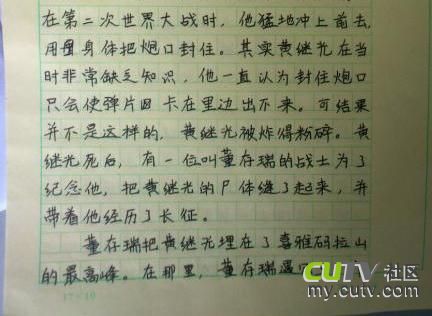 在第二次世界大战时，他猛地冲上前去，
用身体把炮口封住。其实黄继光在当
时非常缺乏知识，他一直认为封住炮口
只会使弹片卡在里边出不来。可结果
并不是这样的，黄继光被炸得粉碎。黄
继光死后，有一位叫董存瑞的战士为了
纪念他，把黄继光的尸体缝了起来，并
带着他经历了长征。
董存瑞把黄继光埋在了喜雅码拉山
的最高峰。在那里，董存瑞遇
CUTV社区
my.cutv.com
17×10